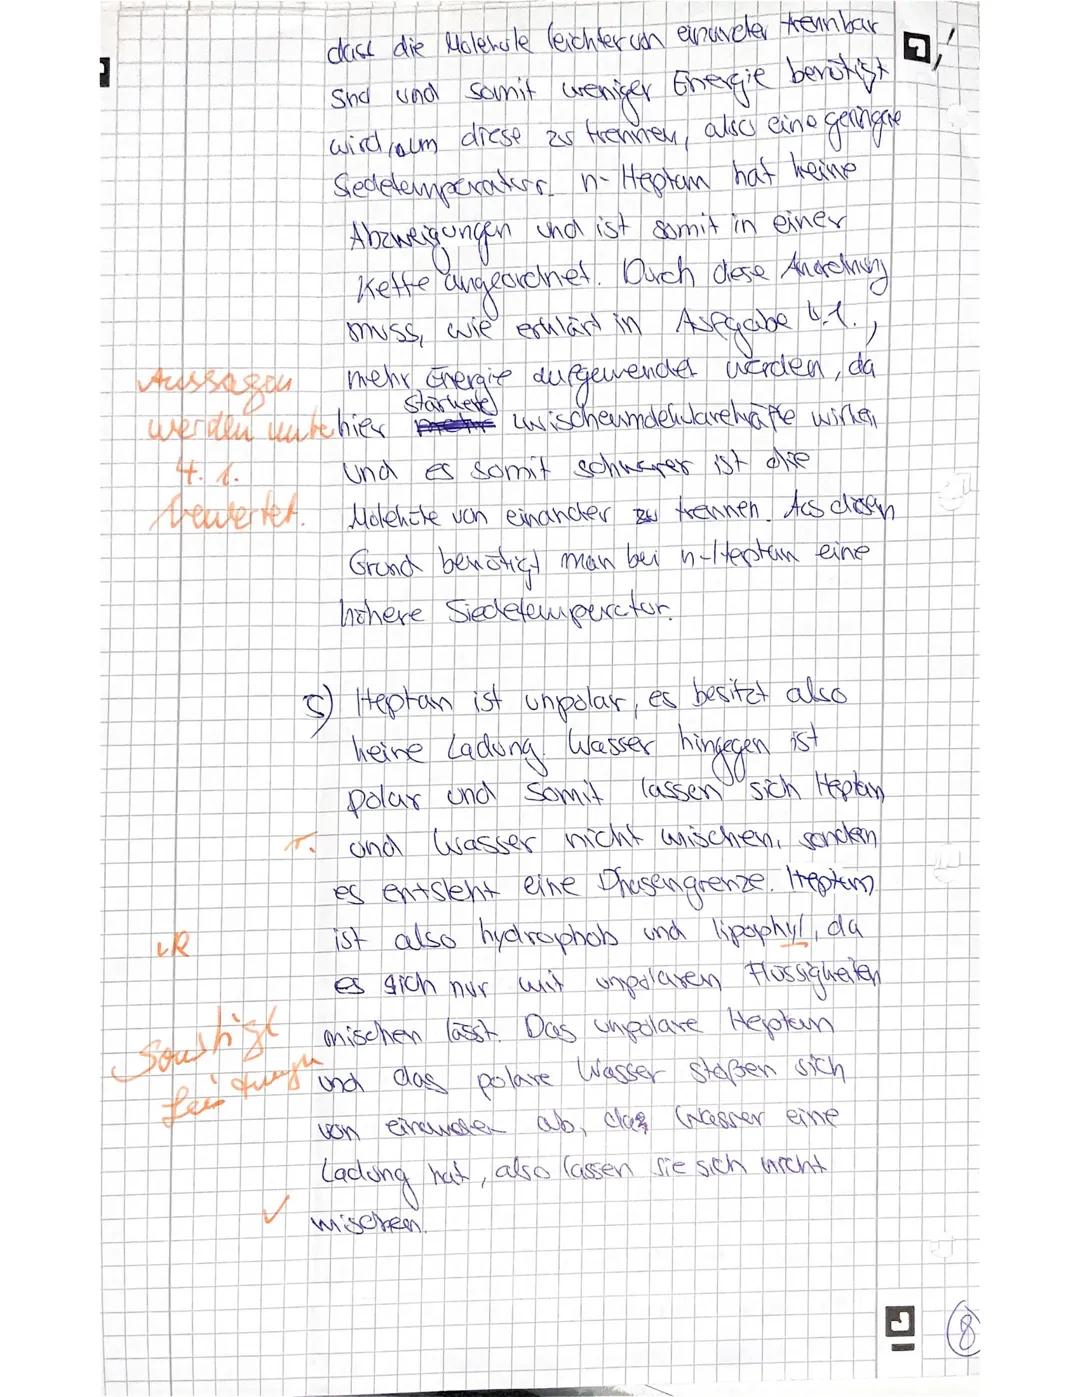 dass die Moleküle leichter von einander trennbar
sind und somit weniger Energie benötigt
wird, um diese zu trennen, also eine geringere
Siedetemperatur. n-Heptan hat keine
Abzweigungen und ist somit in einer
Kette angeordnet. Durch diese Anordnung
muss, wie erklärt in Aufgabe 4.1.,
Aussagen mehr Energie aufgewendet werden, da
stärkere
werden unter hier zwischenmolekularekräfte wirken
4.1. und es somit schwerer ist die
bewertet. Moleküle von einander zu trennen. Aus diesem
Grund benötigt man bei n-Heptan eine
höhere Siedetemperatur.
5) Heptan ist unpolar, es besitzt also
keine Ladung. Wasser hingegen ist
polar und somit lassen sich Heptan
und Wasser nicht mischen, sondern
es entsteht eine Phasengrenze. Heptan
R ist also hydrophob und lipophyl, da
es sich nur mit unpolaren Flüssigkeiten
mischen lässt. Das unpolare Heptan
und das polare Wasser stoßen sich
von einander ab, das Wasser eine
Ladung hat, also lassen sie sich nicht
✓ mischen.
8